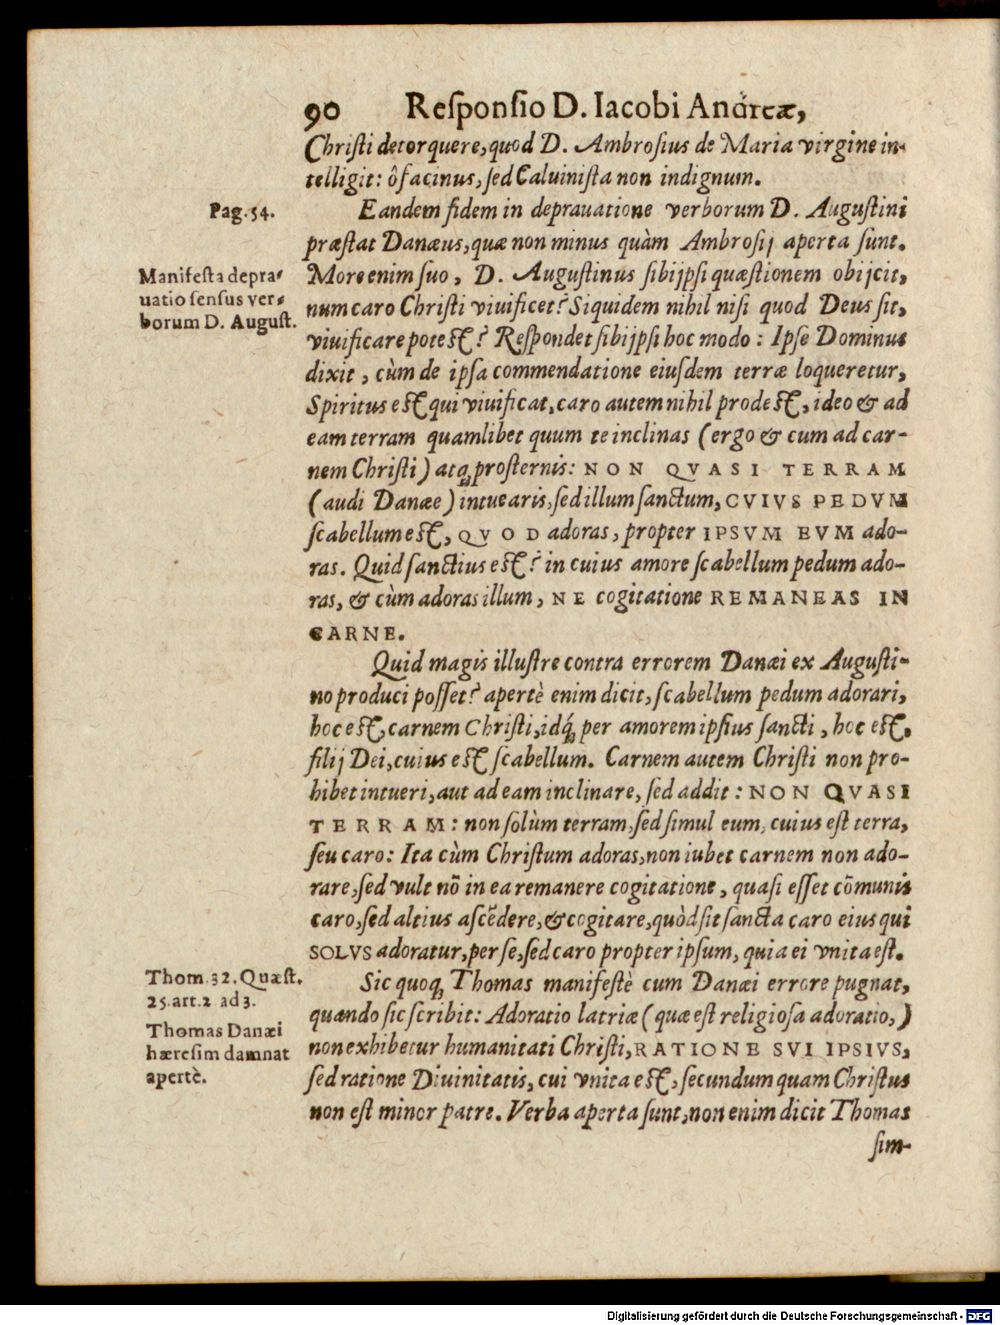 90 Responsio D. Iacobi Andreæ,
Christi detorquere, quod D. Ambrosius de Maria virgine in-
telligit: ô facinus, sed Caluinista non indignum.
Pag. 54.
Eandem fidem in deprauatione verborum D. Augustini
præstat Danæus, quæ non minus quàm Ambrosij aperta sunt.
Manifesta depra-
uatio sensus ver-
borum D. August.
More enim suo, D. Augustinus sibijpsi quæstionem obijcit,
num caro Christi viuificet? Siquidem nihil nisi quod Deus sit,
viuificare potest? Respondet sibijpsi hoc modo: Ipse Dominus
dixit, cùm de ipsa commendatione eiusdem terræ loqueretur,
Spiritus est qui viuificat, caro autem nihil prodest, ideo & ad
eam terram quamlibet quum te inclinas (ergo & cum ad car-
nem Christi) atq; prosternis: NON QVASI TERRAM
(audi Danæe) intuearis, sed illum sanctum, CVIVS PEDVM
scabellum est, QVOD adoras, propter IPSVM EVM ado-
ras. Quid sanctius est? in cuius amore scabellum pedum ado-
ras, & cùm adoras illum, NE cogitatione REMANEAS IN
CARNE.
Quid magis illustre contra errorem Danæi ex Augusti-
no produci posset? apertè enim dicit, scabellum pedum adorari,
hoc est, carnem Christi, idq́; per amorem ipsius sancti, hoc est,
filij Dei, cuius est scabellum. Carnem autem Christi non pro-
hibet intueri, aut ad eam inclinare, sed addit: NON QVASI
TERRAM: non solùm terram, sed simul eum, cuius est terra,
seu caro: Ita cùm Christum adoras, non iubet carnem non ado-
rare, sed vult nō in ea remanere cogitatione, quasi esset cōmunis
caro, sed altius ascēdere, & cogitare, quòd sit sancta caro eius qui
SOLVS adoratur, per se, sed caro propter ipsum, quia ei vnita est.
Thom. 32. Quæst.
25. art. 2 ad 3.
Thomas Danæi
hæresim damnat
apertè.
Sic quoq; Thomas manifestè cum Danæi errore pugnat,
quando sic scribit: Adoratio latriæ (quæ est religiosa adoratio,)
non exhibetur humanitati Christi, RATIONE SVI IPSIVS,
sed ratione Diuinitatis, cui vnita est, secundum quam Christus
non est minor patre. Verba aperta sunt, non enim dicit Thomas
sim-
Digitalisierung gefördert durch die Deutsche Forschungsgemeinschaft - DFG